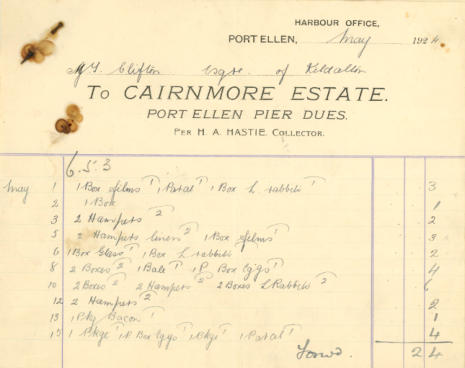 HARBOUR OFFICE,
PORT ELLEN, May 1924
Clifton Esqre of Kildalton
To CAIRNMORE ESTATE.
PORT ELLEN PIER DUES.
PER H. A. HASTIE, COLLECTOR.
6.5.3
May 1 1 Box films 1 1 Parcel 1 1 Box L rabbits 1 3
2 1 Box 1
3 2 Hampers 2 2
5 2 Hampers linen 2 1 Box films 1 3
6 1 Box Glass 1 1 Box L rabbits 2
8 2 Boxes 2 1 Bale 1 1 P Box Eggs 1 4
10 2 Boxes 2 2 Hampers 2 2 Boxes L Rabbits 2 6
12 2 Hampers 2 2
13 1 Pkg Bacon 1 1
15 1 Pkge 1 1 P Box Eggs 1 1 Pkge 1 1 Parcel 1 4
Forwd. 2 4